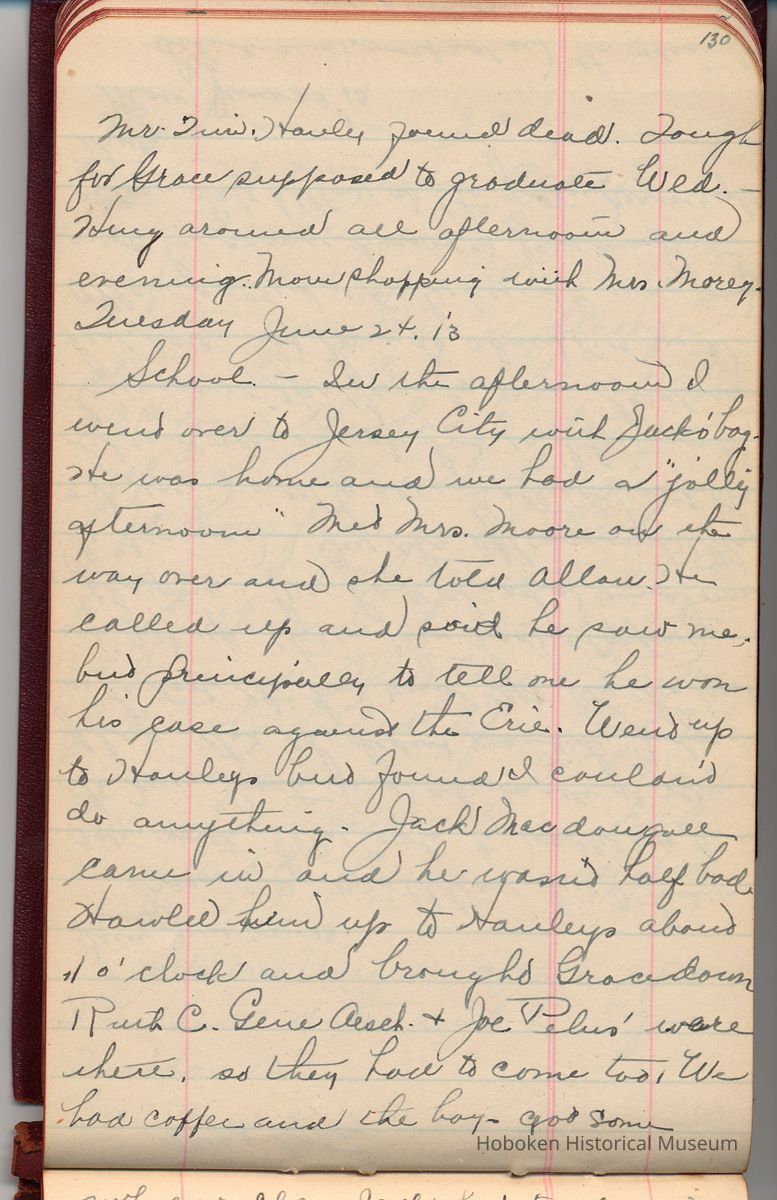 130
Mr. Tim. Hanley found dead. Tough
for Grace supposed to graduate Wed. —
Hung around all afternoon and
evening. Mom shopping with Mrs. Morey.
Tuesday June 24, 13
School. — In the afternoon I
went over to Jersey City with bag.
He was home and we had a "jolly
afternoon" Met Mrs. Moore on the
way over and she told Allan. He
called up and said he saw me,
but principally to tell me he won
his case against the Erie. Went up
to Hanleys but found I couldn't
do anything. Jack Macdougall
came in and he wasn't half bad.
Hauled him up to Hanleys about
11 o'clock and brought Grace down
Ruth C. Gene Aesch. & Joe Pelus' were
there, so they had to come too. We
had coffee and the boys got some
Hoboken Historical Museum